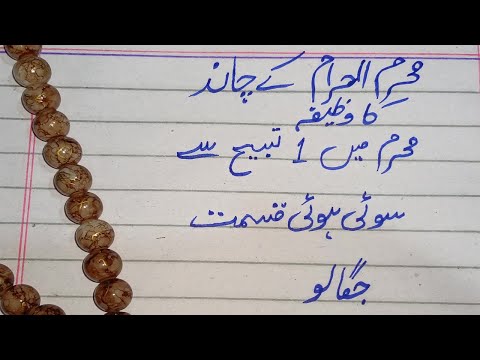 محرم الحرام کے چاند
کا وظیفہ
محرم میں 1 تسبیح سے
سوئی ہوئی قسمت
جگالو